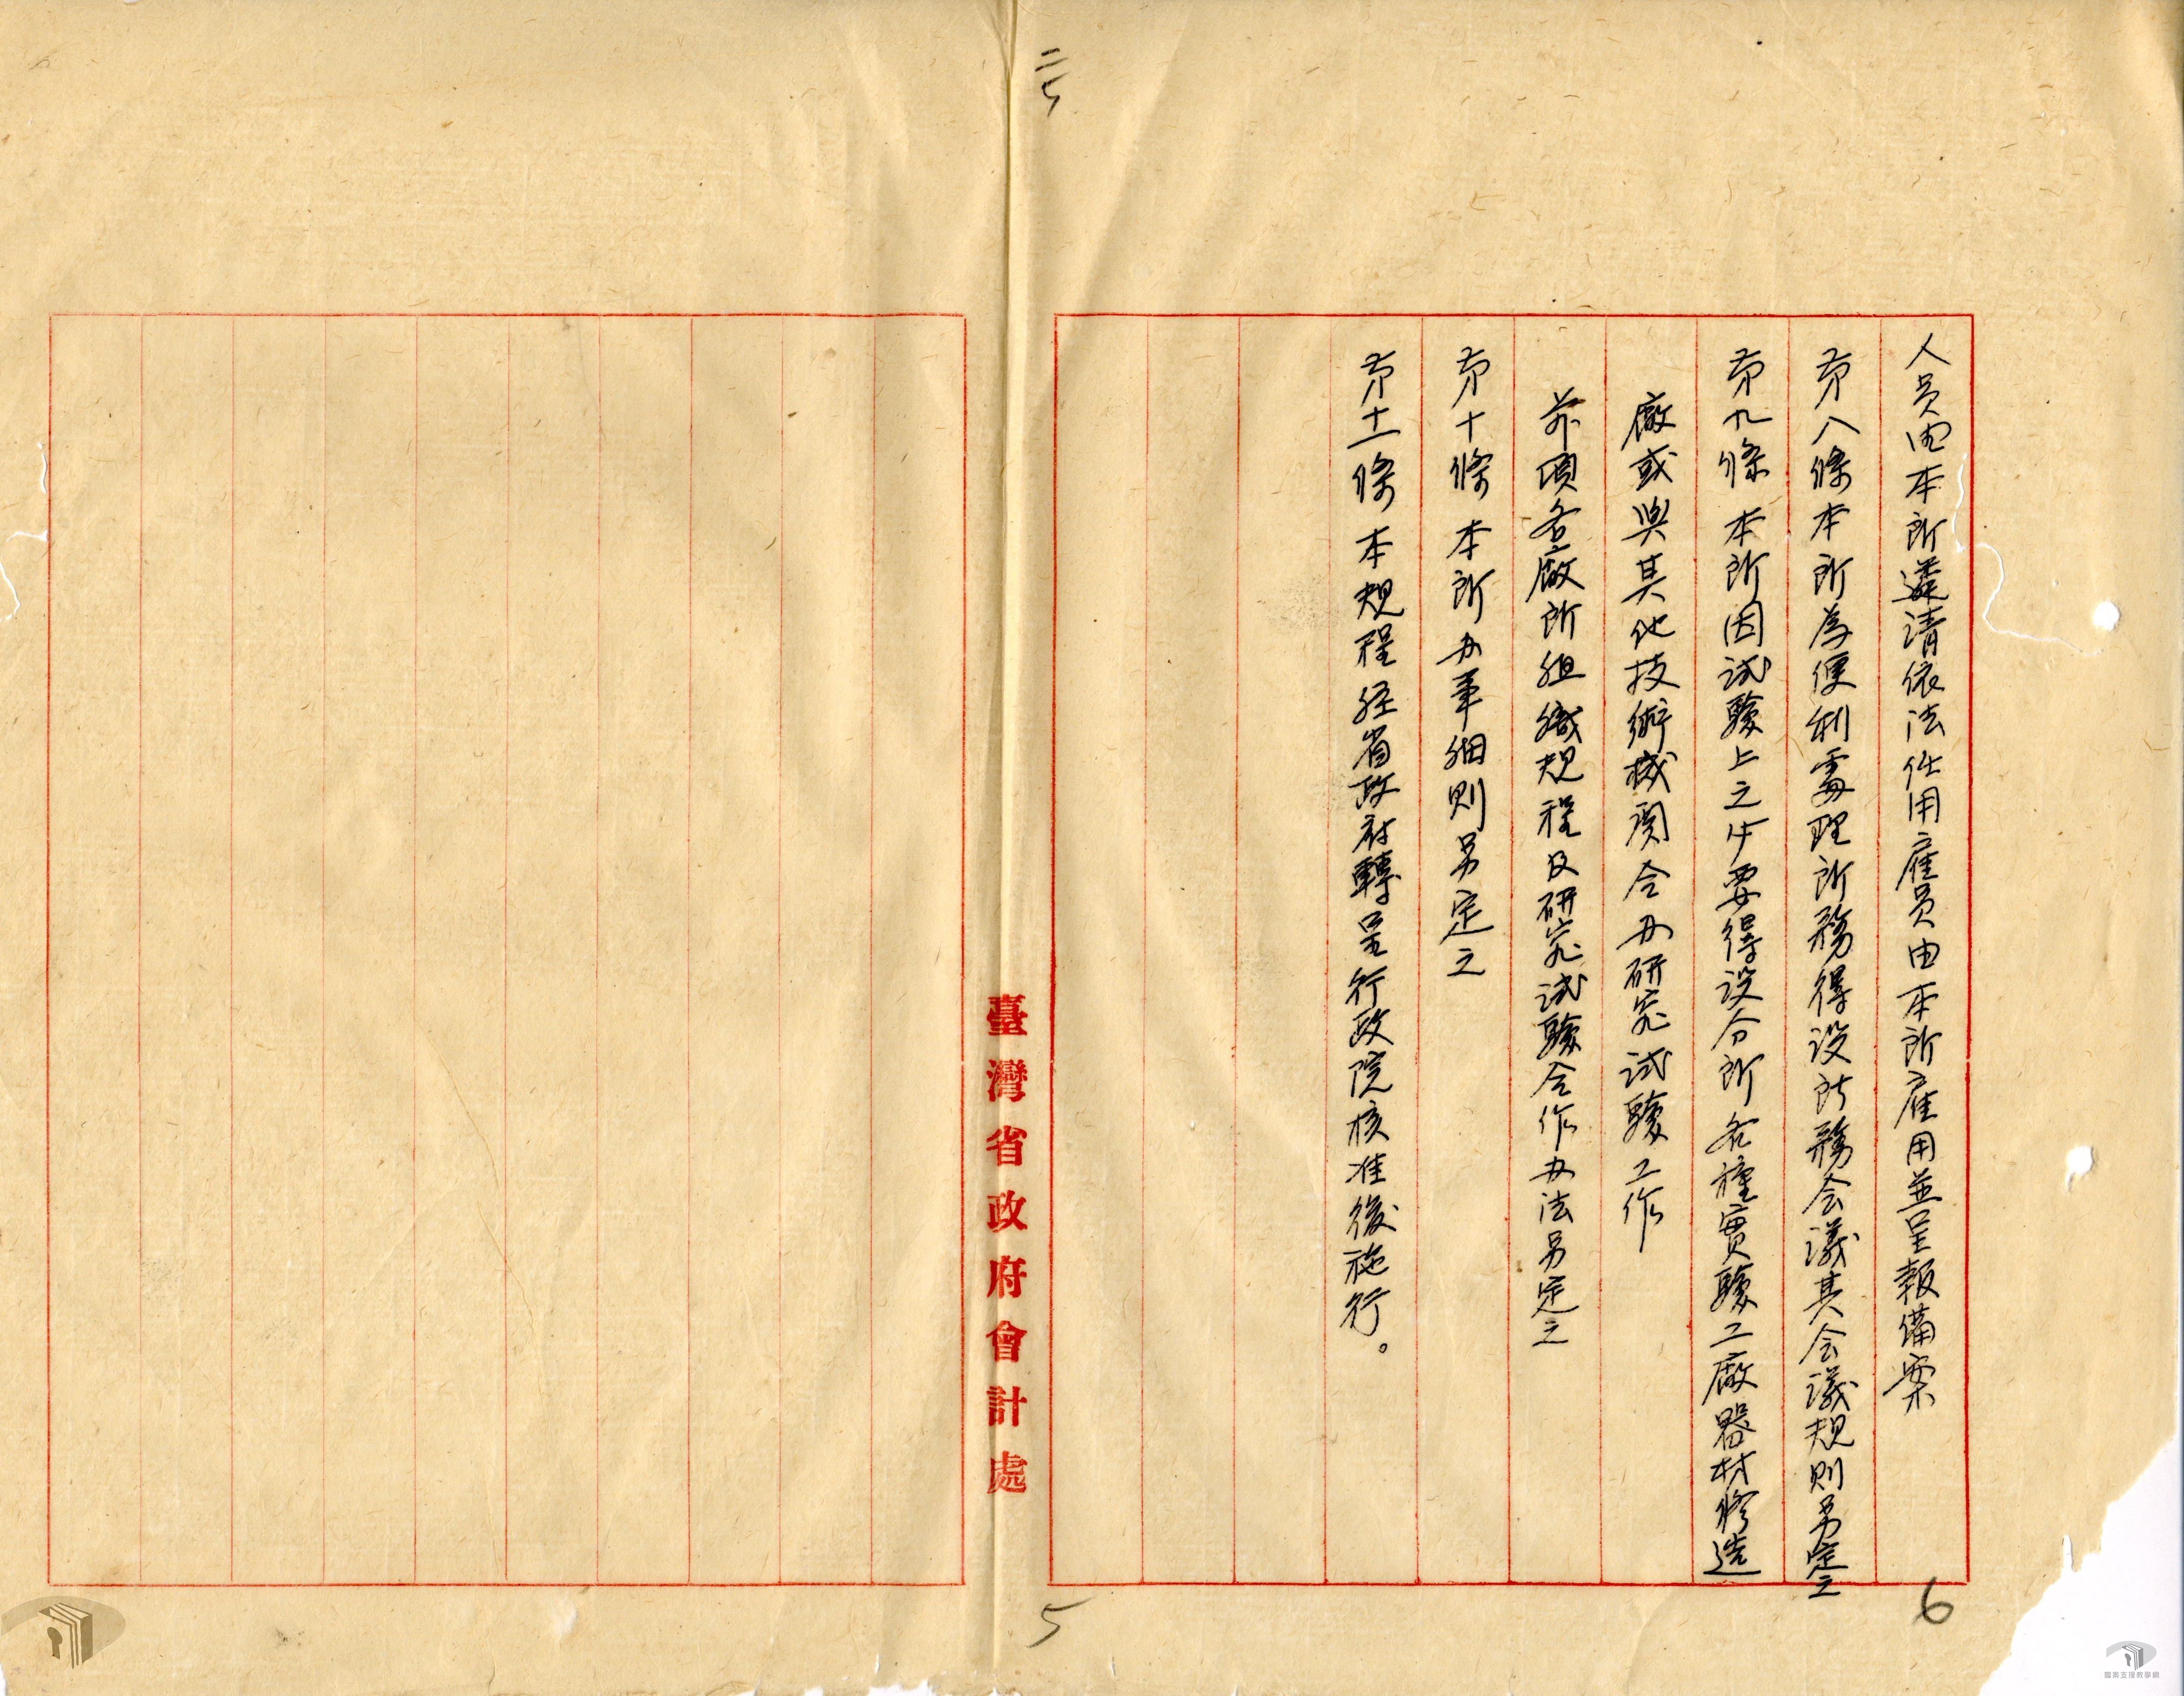 人员由本所遴请依法任用雇员由本所雇用並呈報備案
第八條本所為便利處理所務得设所務会議其会議規则另定之
第九條 本所因试驗上之必要得设分所各種實驗工廠器材修造
廠或與其他技術機関合办研究试驗工作
前項各廠所组織規程及研究试驗合作办法另定之
第十條 本所办事细则另定之
第十一條 本規程经省政府轉呈行政院核准後施行。
臺灣省政府會計處
5
6
檔案支援教學網